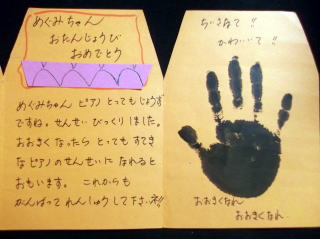 めぐみちゃん
おたんじょうび
おめでとう
めぐみちゃん ピアノ とっても じょうず
ですね。せんせい びっくりしました。
おおきく なったら とっても すてき
な ピアノの せんせいに なれると
おもいます。これからも
がんばって れんしゅう して 下さいネ!!
ちいさなて!!
かわいいて!!
おおきくなれ
おおきくなれ